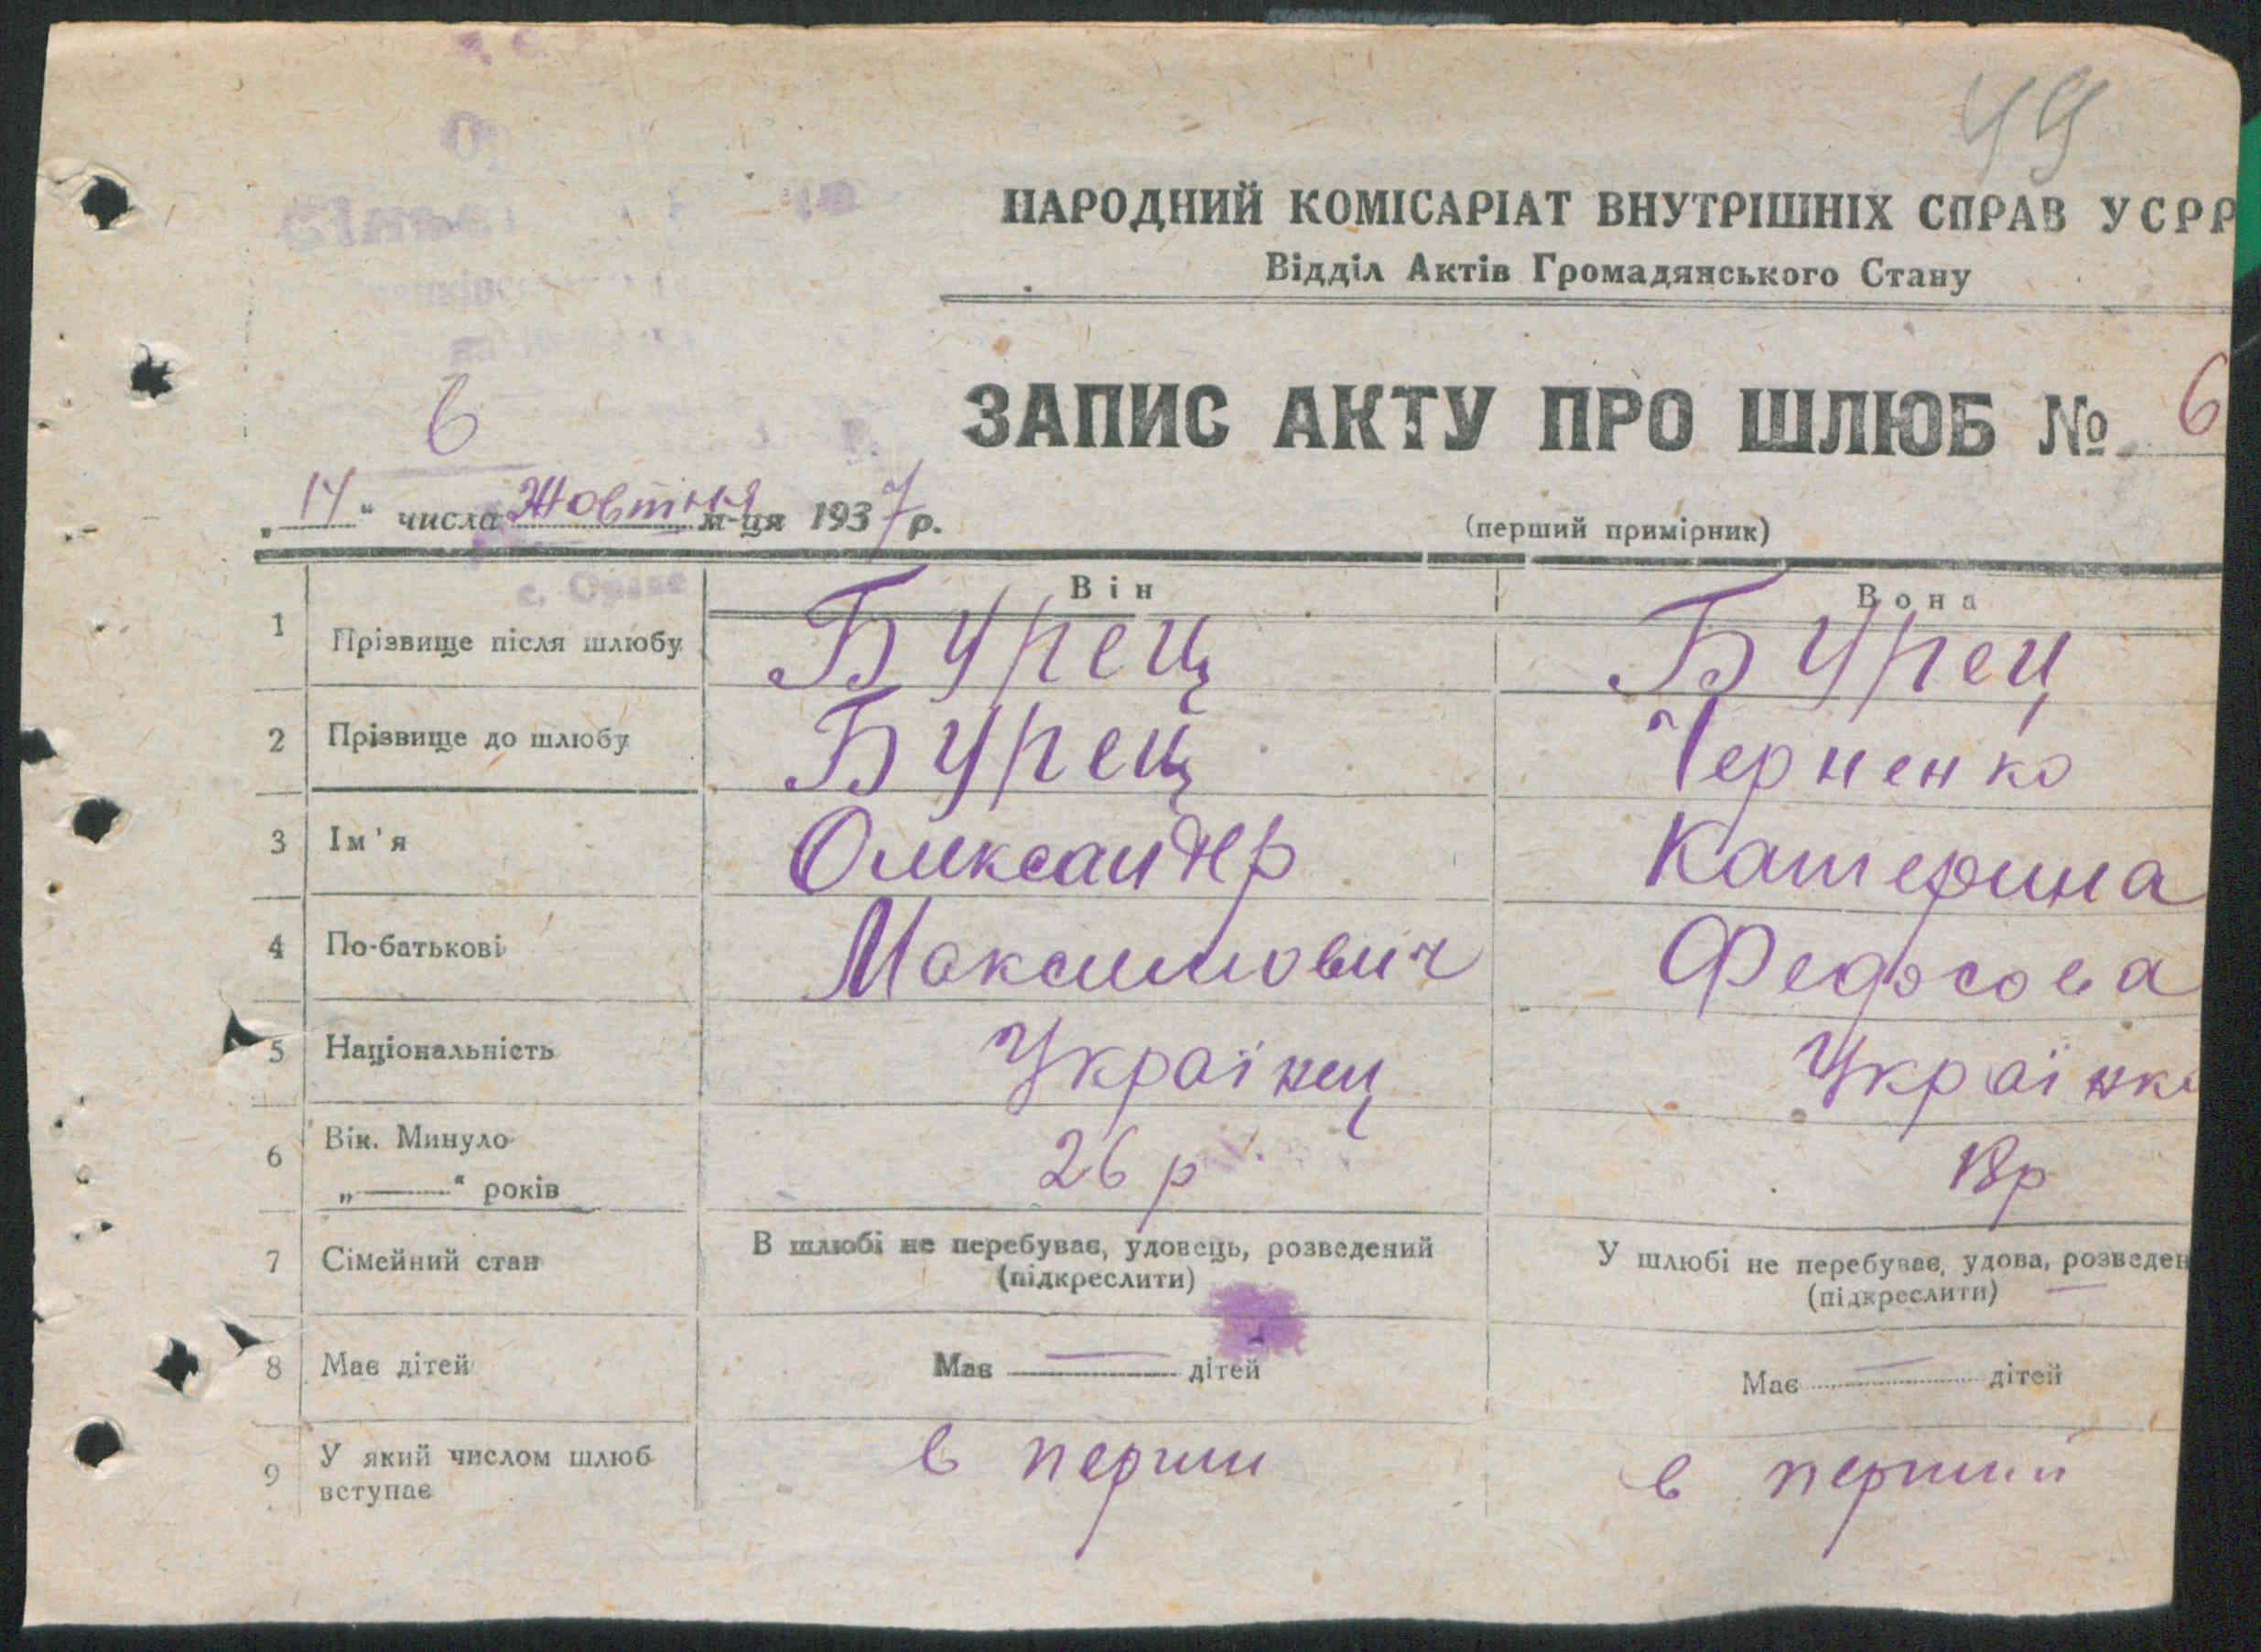 49
НАРОДНИЙ КОМІСАРІАТ ВНУТРІШНІХ СПРАВ УСРР
Відділ Актів Громадянського Стану
ЗАПИС АКТУ ПРО ШЛЮБ № 6
6
„14“ числа Жовтня м-ця 1937 р.
(перший примірник)
Він Вона
1 Прізвище після шлюбу Бурец Бурец
2 Прізвище до шлюбу Бурец Черненко
3 Ім'я Олександер Катерина
4 По-батькові Максимович Федосова
5 Національність Українец Українка
6 Вік. Минуло „——“ років 26 р 18р
7 Сімейний стан В шлюбі не перебуває, удовець, розведений (підкреслити) У шлюбі не перебуває, удова, розведен (підкреслити)
8 Має дітей Має — дітей Має — дітей
9 У який числом шлюб вступає в перши в перший